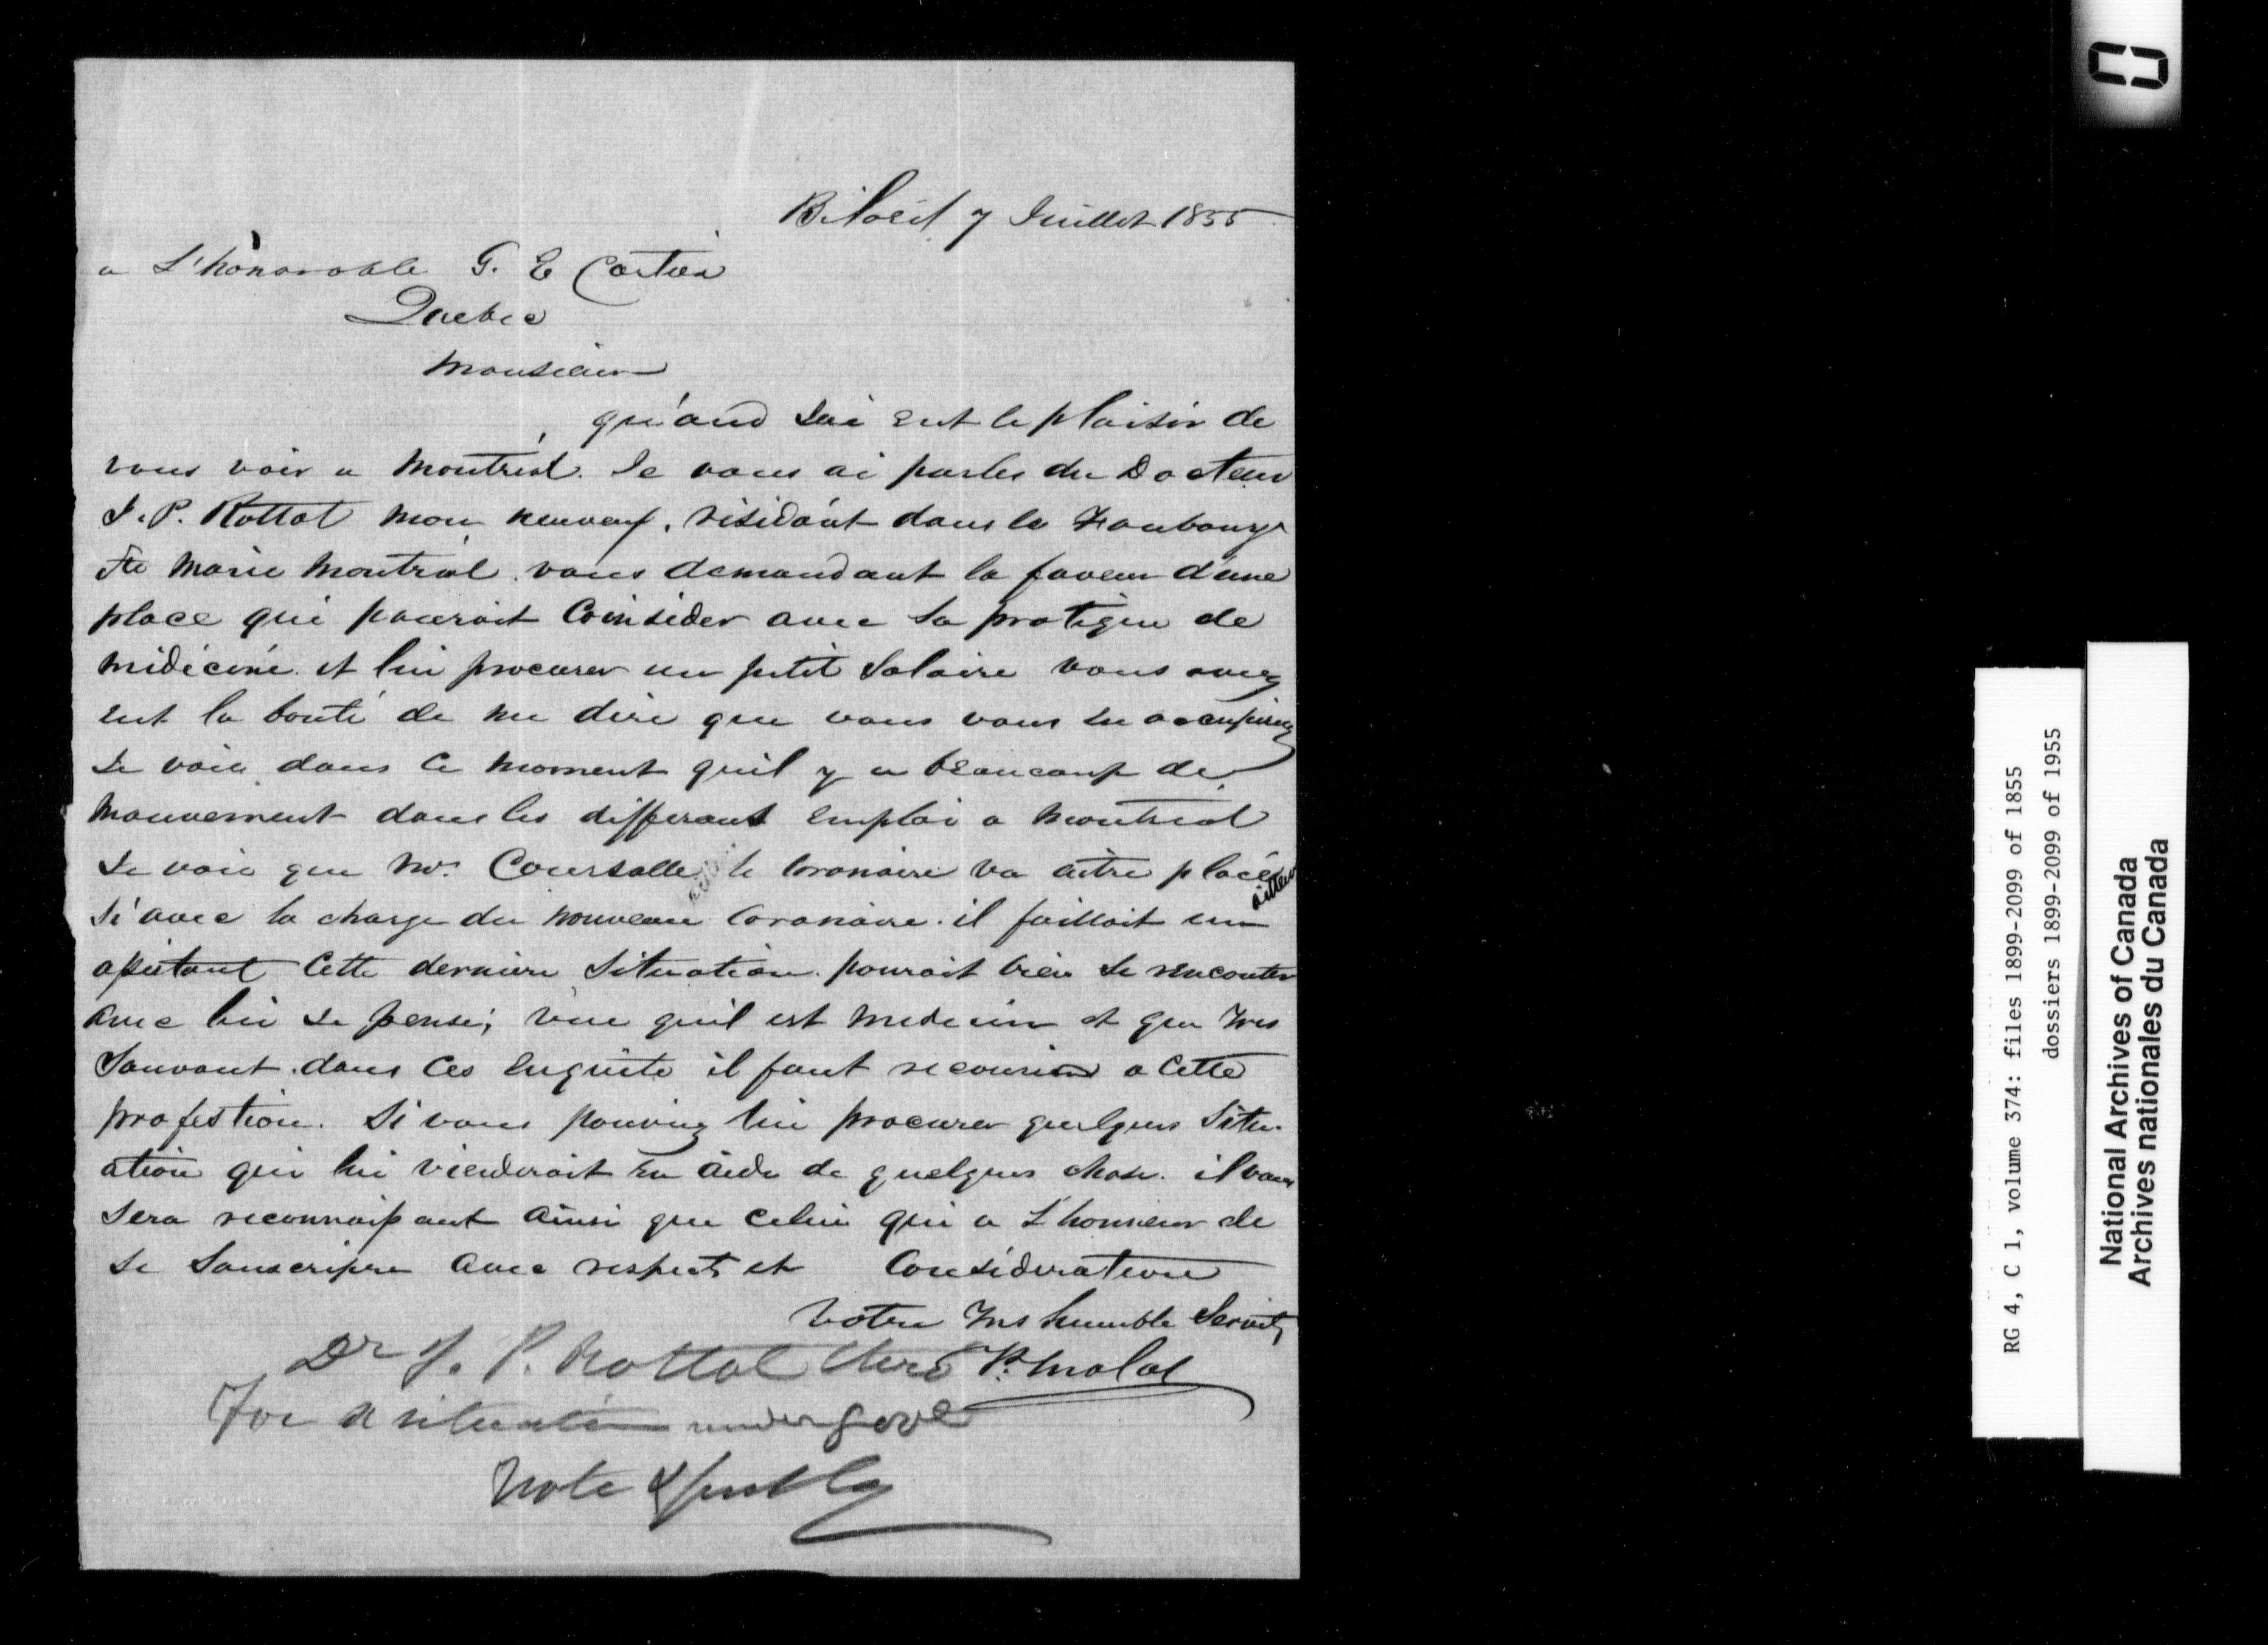 Bilœil 7 Juillet 1855
a L'honorable G. E Cartier
Quebec
Monsieur
qu'and Jai eut le plaisir de
vous voir a Montréal. Je vous ai parler du Docteur
J. P. Rottot mon neuveuf, résidant dans le Faubourg
Ste Marie Montréal vous demandant la faveur d'une
place qui pouroit Coinsider avec sa pratique de
médécine et lui procurer un petit Salaire vous avez
eut la bonté de me dire que vous vous en occuperiez
Je vois dans ce moment quil y a beaucoup de
mouvement dans les different emploi a Montreal
Je vois que Mr. Coursolle le Coronaire va aitre placer
ailleur
Si avec la charge du nouveau Coronaire il failloit un
assistant Cette derniere Situation pouroit bien se rencontrer
avec lui Je pense; vue quil est medecin et que tres
Souvant dans ces enquete il faut recourir a Cette
profestion. Si vous pouviez lui procurer quelques Situ-
ation qui lui vienderoit en aide de quelques chose. il vous
Sera reconnaissant ainsi que celui qui a L'honneur de
Se Souscripre avec respects et Consideration
Votre tres humble Servit
P. Malot
Dr J. P. Rottot
For a situation under Govt
Note
RG 4, C 1, volume 374: files 1899-2099 of 1855
dossiers 1899-2099 of 1955
National Archives of Canada
Archives nationales du Canada